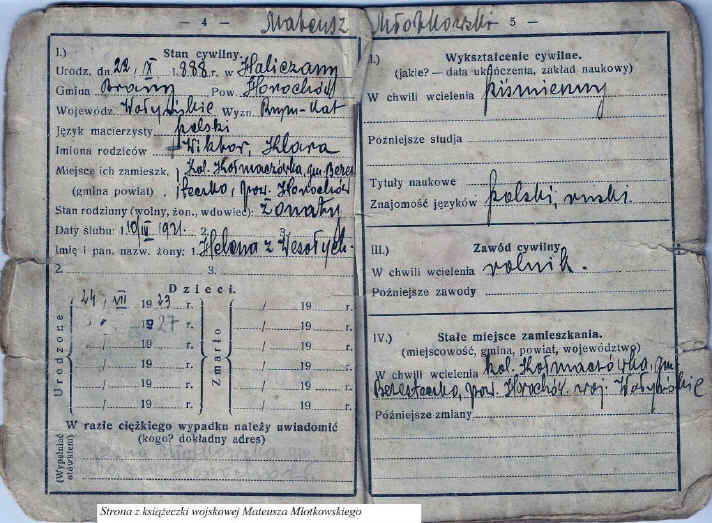 — 4 —
Mateusz
I.) Stan cywilny.
Urodz. dn. 22, IX 1888 r. w Haliczany
Gmina Brany Pow. Horochów
Wojewódz. Wołyńskie Wyzn. Rzym-kat
Język macierzysty polski
Imiona rodziców Wiktor, Klara
Miejsce ich zamieszk. kol. Kozmaczówka, gm. Beres
(gmina powiat) teczko, pow. Horochów
Stan rodzinny (wolny, żon., wdowiec) żonaty
Daty ślubu: 1. 10/III 1921. 2. 3.
Imię i pan. nazw. żony: 1. Helena z Wesołych.
2. 3.
Dzieci.
Urodzone
24, VII 1923 r.
1927 r.
/ 19 r.
/ 19 r.
/ 19 r.
/ 19 r.
Zmarło
/ 19 r.
/ 19 r.
/ 19 r.
/ 19 r.
/ 19 r.
/ 19 r.
W razie ciężkiego wypadku należy uwiadomić
(kogo? dokładny adres)
(Wypełniać ołówkiem)
Młotkowski 5 —
I.)
Wykształcenie cywilne.
(jakie? — data ukończenia, zakład naukowy)
W chwili wcielenia piśmienny
Późniejsze studja
Tytuły naukowe
Znajomość języków polski, ruski.
III.) Zawód cywilny
W chwili wcielenia rolnik.
Późniejsze zawody
IV.) Stałe miejsce zamieszkania.
(miejscowość, gmina, powiat, województwo)
W chwili wcielenia kol. Kozmaczówka, gm.
Beresteczko, pow. Horochów. woj. Wołyńskie
Późniejsze zmiany
Strona z książeczki wojskowej Mateusza Młotkowskiego